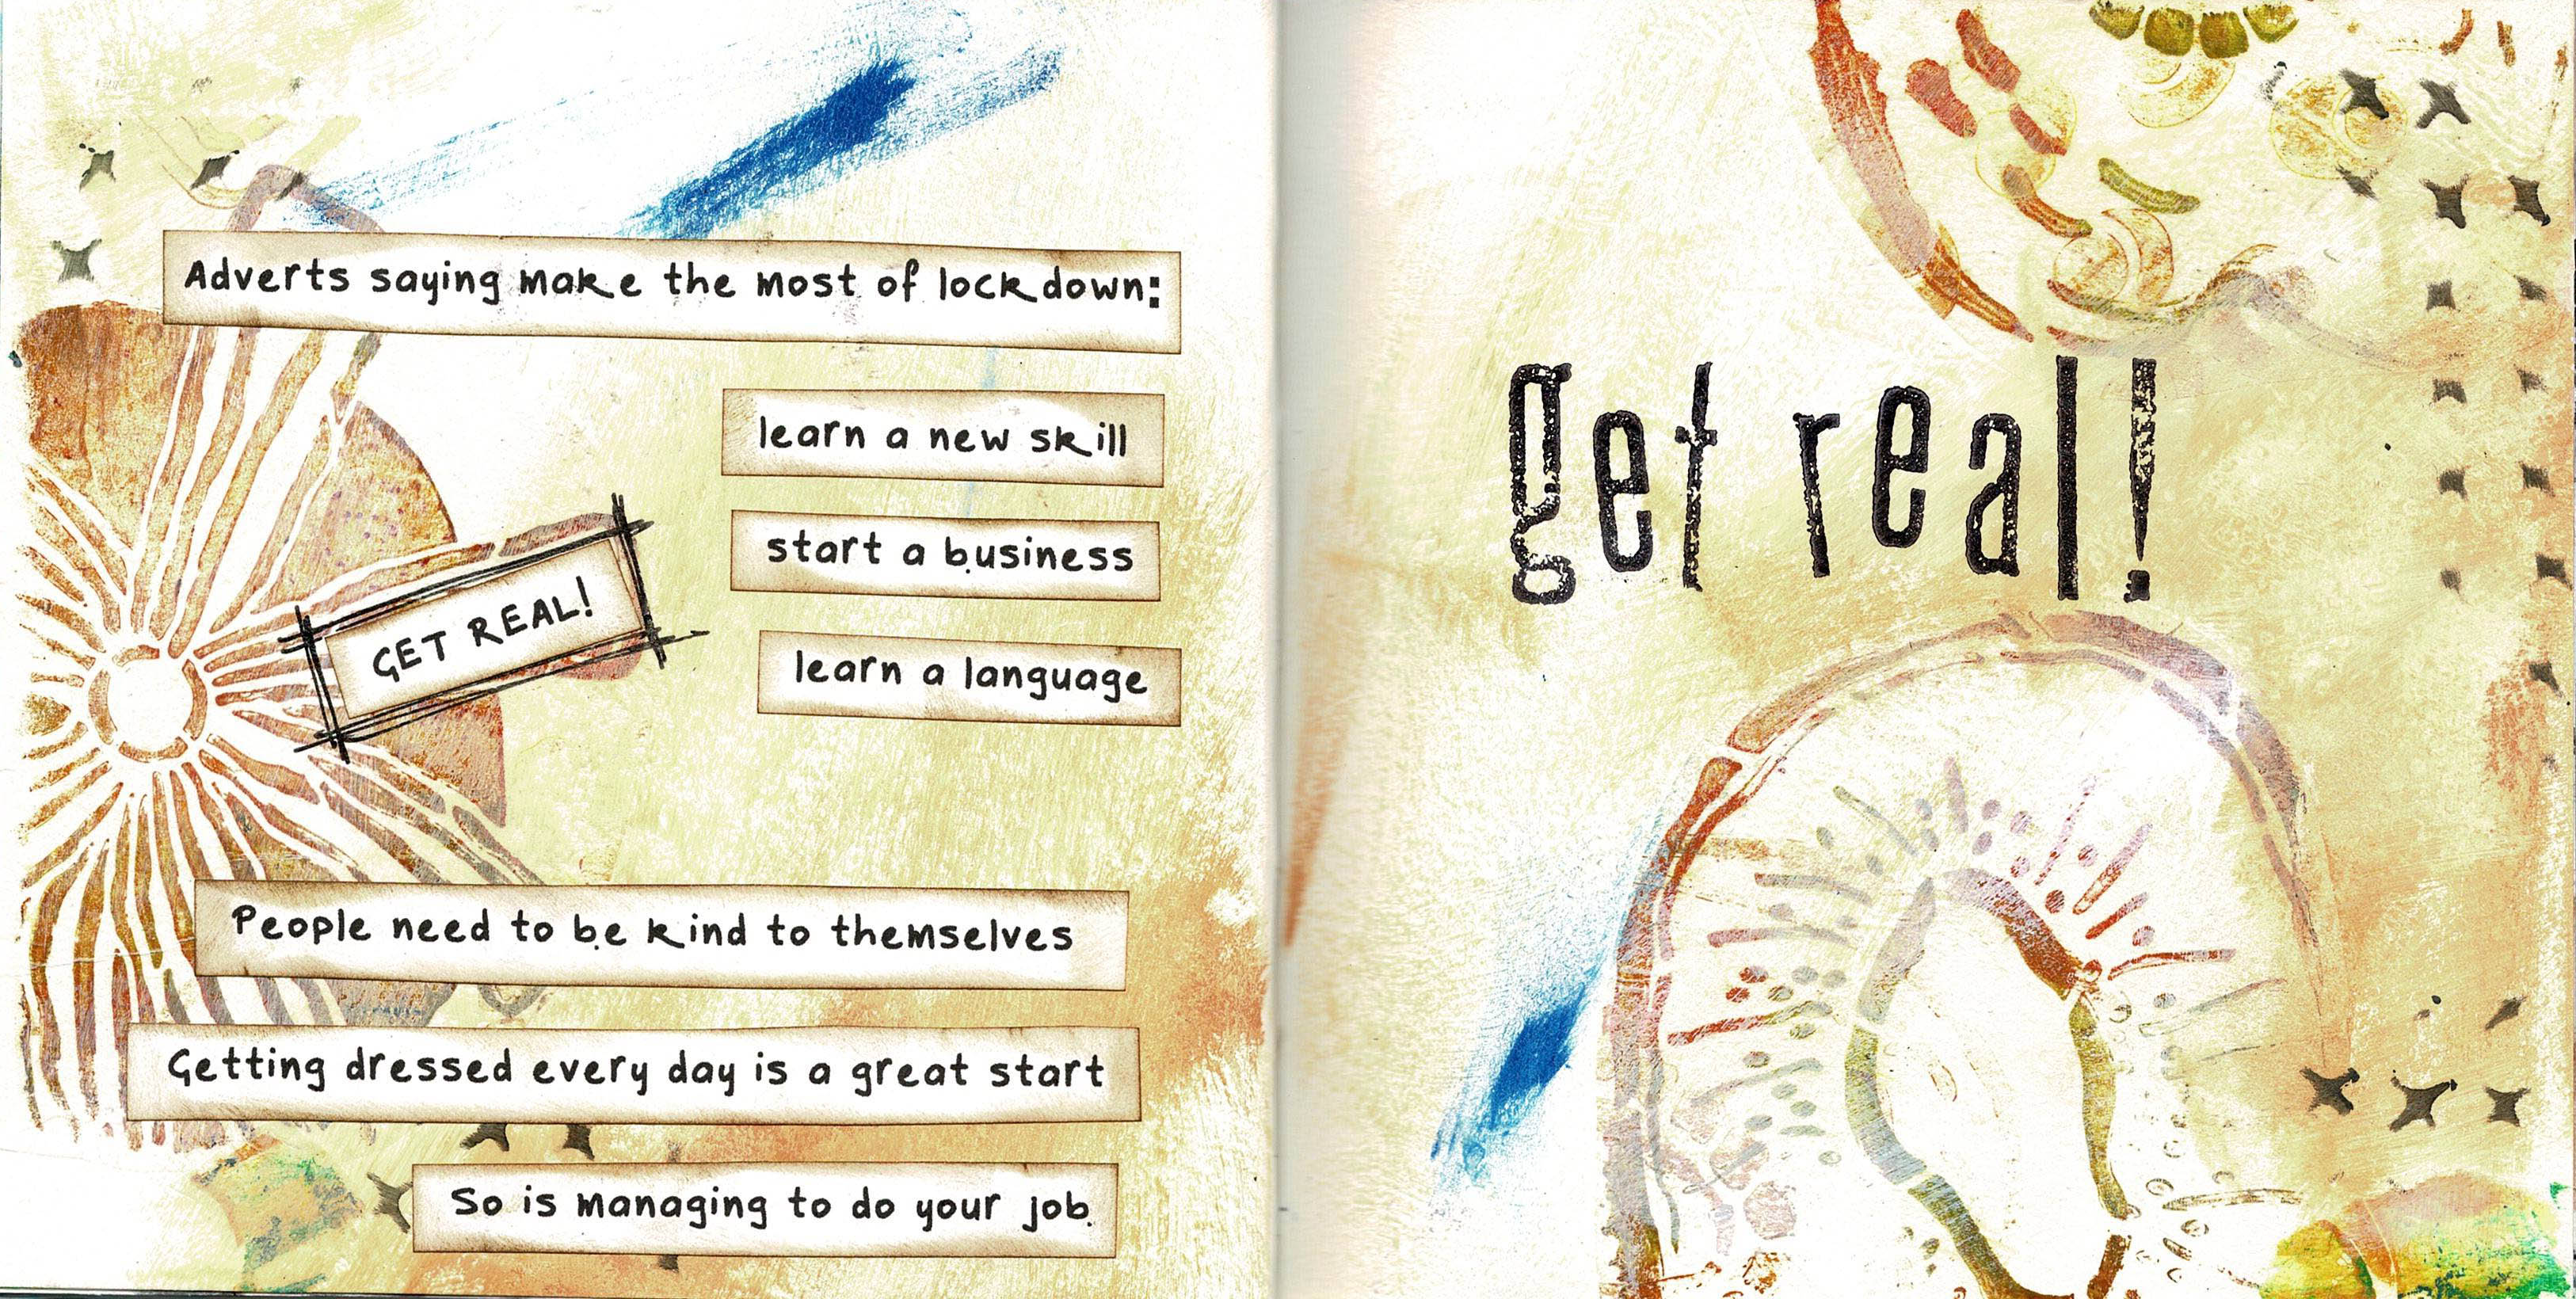 Adverts saying make the most of lockdown:
learn a new skill
start a business
learn a language
GET REAL!
People need to be kind to themselves
Getting dressed every day is a great start
So is managing to do your job.
get real!